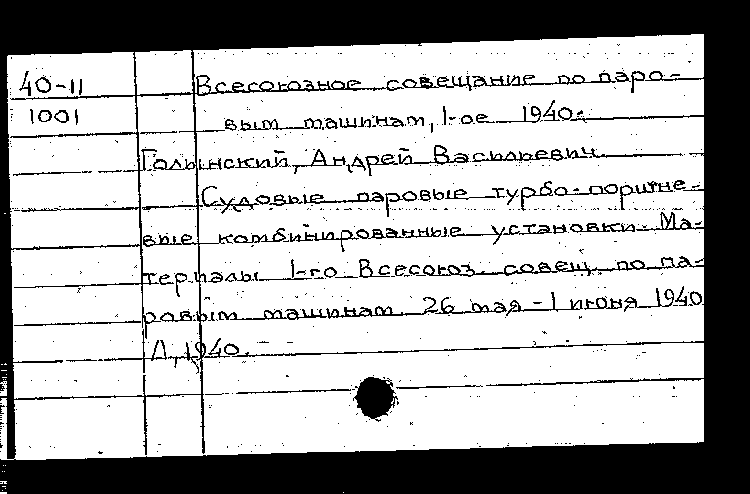 40-11
1001
Всесоюзное совещание по паро-
вым машинам, 1-ое 1940.
Голынский, Андрей Васильевич.
Судовые паровые турбо-поршне-
вые комбинированные установки. Ма-
териалы 1-го Всесоюз. совещ. по па-
ровым машинам 26 мая - 1 июня 1940
Л., 1940.